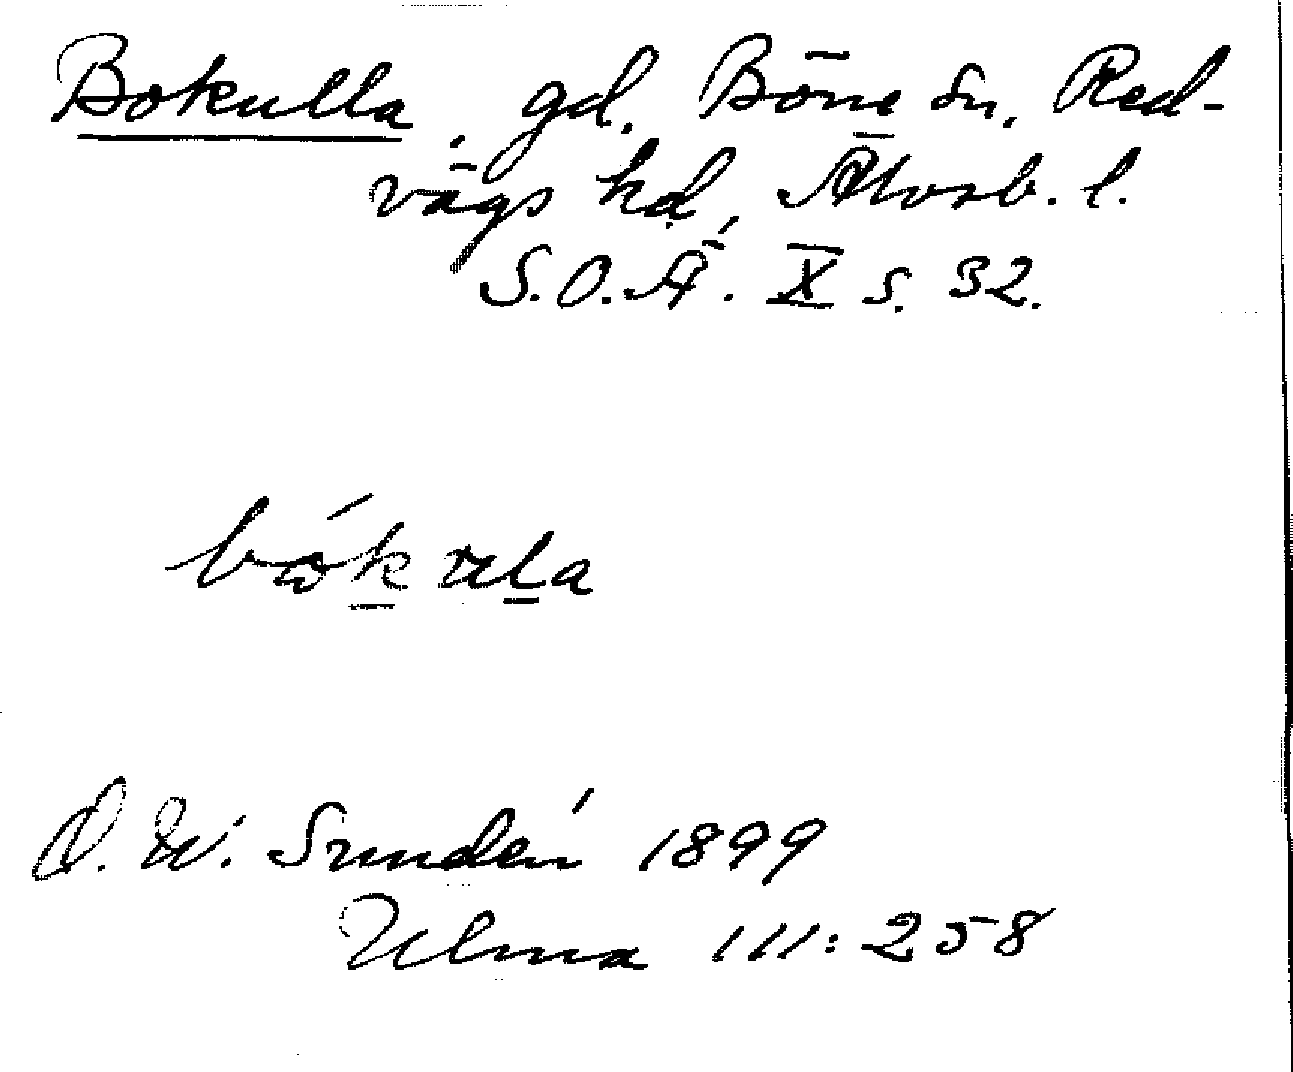 Bokulla, gd. Böne sn, Red-
vägs hd, Älvsb. l.
S.O.Ä. X s. 32.
bókula
D. W. Sundén 1899
Ulma 111:258